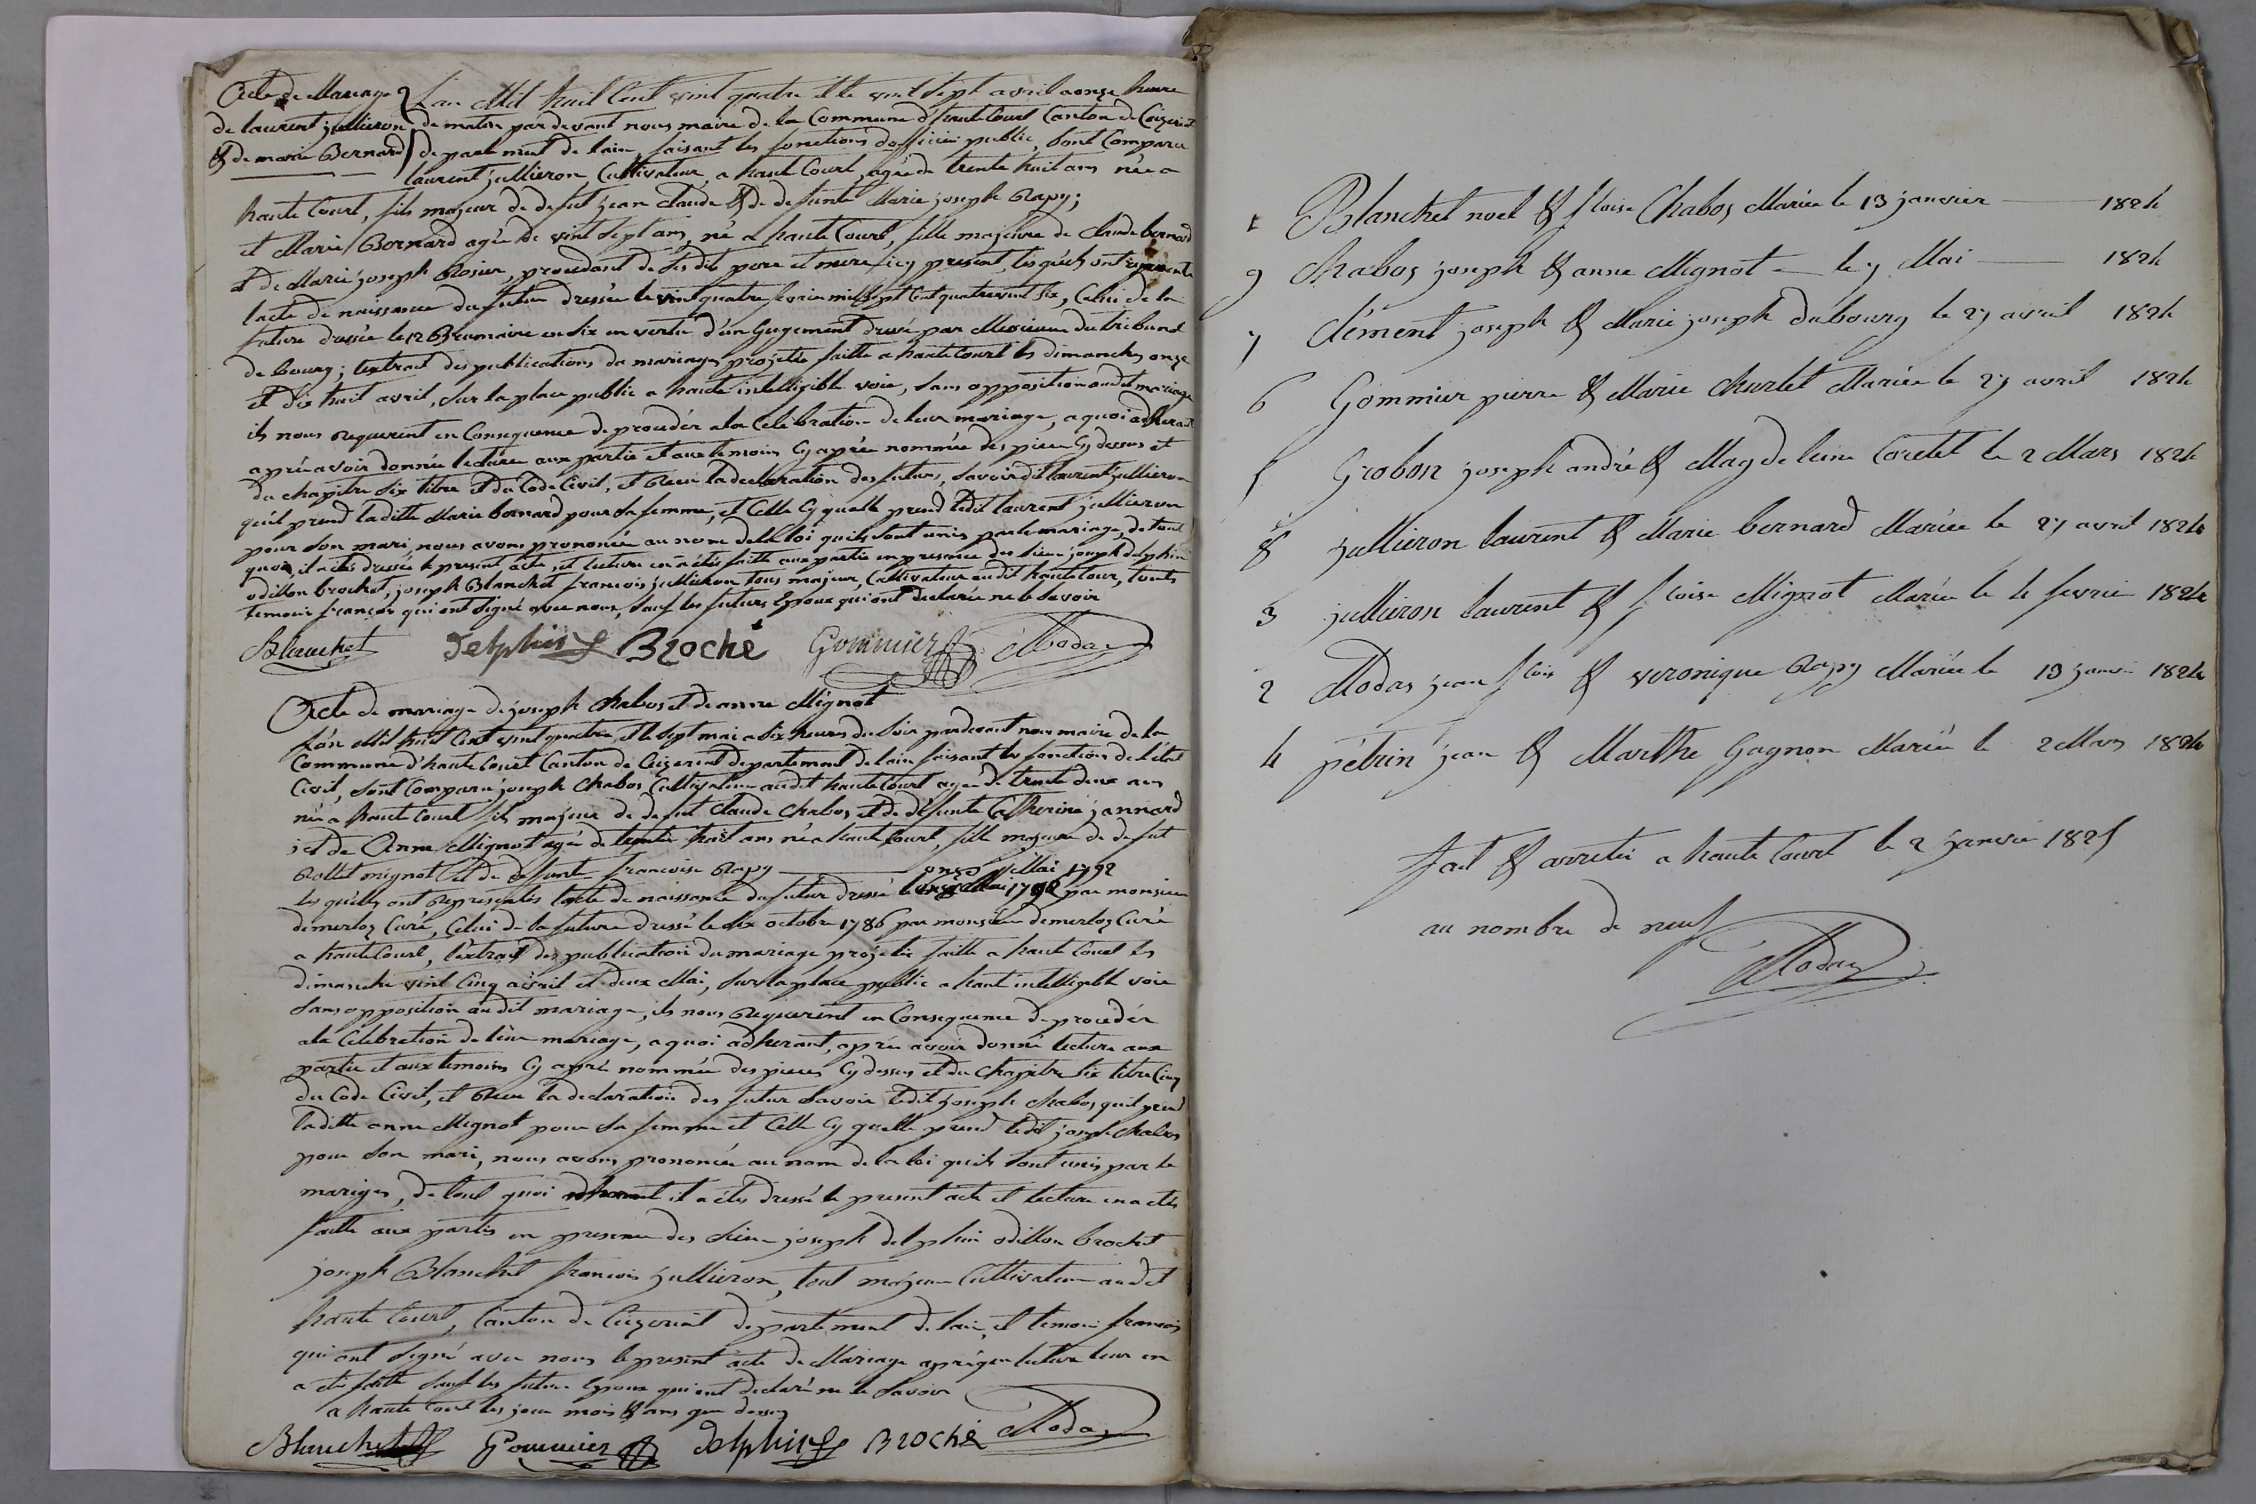 Acte de Mariage
de laurent jullieron
& de marie Bernard
L'an Mil huit Cent vint quatre et le vint sept avril a onze heure
de matin pardevant nous maire de la Commune d'hautecourt Canton de Ceizeriat
departement de lain, faisant les fonctions dofficier public, sont Comparu
laurent jullieron Cultivateur, a haute Court, agée de trente huit ans née a
haute Court, fils majeur de defut jean Claude & de defunte Marie joseph Rapy;
et Marie Bernard agée de vint sept ans, né a haute Court, fille majeure de Claude bernard
et de Marie joseph Rosier, procedant de ses dits pere et mere icy present, lesquels ont representé
lacte de naissance du futur dressée le vint quatre fevrier mil sept Cent quatrevint six, Celui de la
future dressée le 12 Brumaire en six en vertu d'un Jugement dressé par Messieurs du tribunal
de bourg; lextrait des publications du mariages projetée faitte a hauteCourt les dimanches onze
et dix huit avril, sur la place public a haute intelligible voie, sans opposition audit mariage
ils nous requerent en Consequence de proceder a la Celebration de leur mariage, a quoi adherant
aprée avoir donnée lecture aux partie et aux temoins Cy aprée nommée des pieces Cy dessus et
du chapitre six titre et du Code Civil, et Recu la declaration des futurs, savoir dit laurent jullieron
quil prend laditte Marie bernard pour sa femme, et Celle Cy quelle prend ledit laurent jullieron
pour son mari, nous avons prononcée au nom de la loi quils sont unis par le mariage, de tout
quoi, il a étés dressée le present acte, et lecture en a étés faitte aux partie en presence des sieurs joseph delphin
odillon brochet, joseph Blanchet francois jullieron tous majeur, Cultivateur audit hautecour, touts
temoin français qui ont signé avec nous, sauf les futurs Epoux qui ont declarée ne le savoir
Blanchet delphin Broché Gommier Modas
Acte de mariage de joseph Chabos et de anne Mignot
L'an Mil huit Cent vint quatre, et le sept mai a six heures du soir pardevant nous maire de la
Commune d'haute Court Canton de Ceizeriat departement de lain faisant les fonctions de l'état
Civil, sont Comparu joseph Chabos Cultivateur audit haute Court agée de trente deux ans
née a haute Court fils majeur de defut Claude Chabos et de défunte Catherine jannard
et de Anne Mignot agée de trente huit ans né a haute Court, fille majeure de defut
Rollet mignot et de defunte francoise Rapy onze Mai 1792
lesquels ont Representés lacte de naissance du futur dressé le onze Mai 1792 par monsieur
demerloz Curé, Celui de la future dressé le dix octobre 1786 par monsieur demerloz Curé
a haute Court, l'extrait des publication du mariage projetée faitte a haute Court les
dimanche vint Cinq avril et deux Mai, sur la place public a haut intelligible voie
sans opposition audit mariage, ils nous Requerent en Consequence de proceder
ala Célebration de leur mariage, a quoi adherant, aprée avoir donné lecture aux
partie et aux temoins Cy aprée nommée des pieces Cy dessus et du Chapitre six titre Cinq
du Code Civil, et Recu la declaration des futur savoir ledit joseph Chabos quil prend
laditte anne Mignot pour sa femme et Celle Cy quelle prend ledit joseph Chabos
pour son mari, nous avons prononcée au nom de la loi quils sont unis par le
mariges, de tout quoi il a étés dressé le present acte et lecture en a étés
faitte aux parties en presence des sieur joseph delphin odillon brochet
joseph Blanchet francois jullieron, tout majeur Cultivateur audit
haute Court, Canton de Ceizeriat departement de lain, et temoin francais
qui ont signé avec nous le present acte de Mariage aprés que lecture leur en
a été faitte sauf les futurs Epoux qui ont declaré ne le savoir
a haute Court les jour mois & ans que dessus
Blanchet Gommier delphin Broché Modas
1 Blanchet noel & fcoise Chabos Mariée le 13 janvier 1824
9 Chabos joseph & anne Mignot le 7 Mai 1824
7 Clément joseph & Marie joseph dubourg le 27 avril 1824
6 Gommier pierre & Marie Charlet Mariée le 27 avril 1824
5 Grobon joseph andré & Magdeleine Coretet le 2 Mars 1824
8 jullieron laurent & Marie bernard Mariée le 27 avril 1824
3 jullieron laurent & fcoise Mignot Mariée le 4 fevrie 1824
2 Modas jean fcois & veronique Rapy Mariée le 13 janvi 1824
4 pétrin jean & Marthe Gagnon Mariée le 2 Mars 1824
fait & arretée a haute Court le 2 janvie 1825
au nombre de neuf
Modas